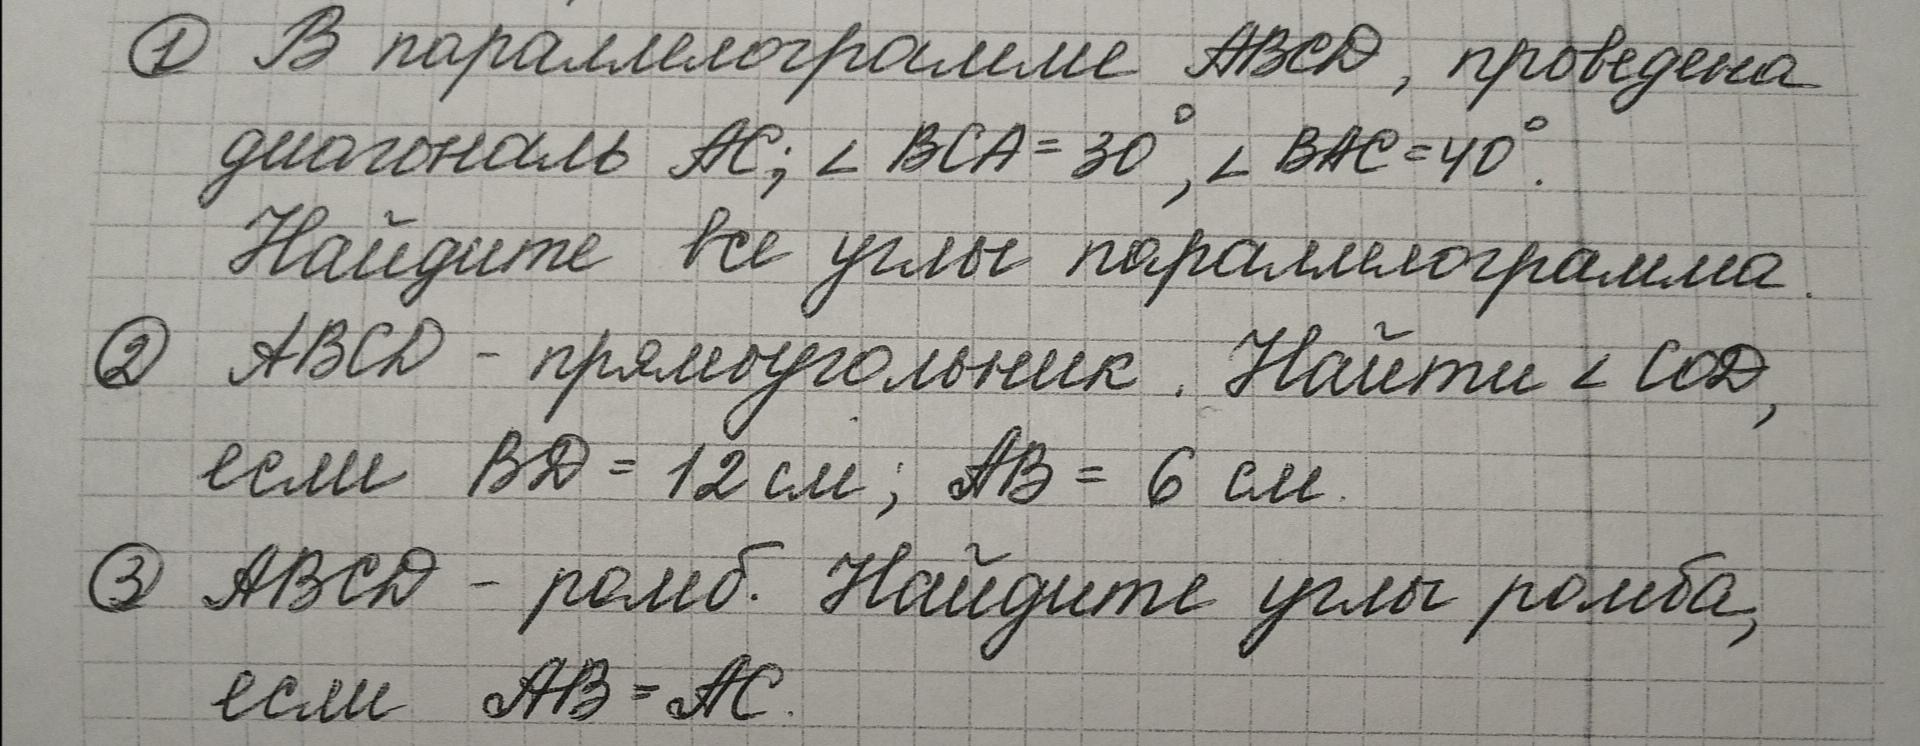 ① В параллелограмме ABCD, проведена
диагональ AC; ∠ BCA = 30°, ∠ BAC = 40°.
Найдите все углы параллелограмма.
② ABCD - прямоугольник. Найти ∠ COD,
если BD = 12 см; AB = 6 см.
③ ABCD - ромб. Найдите углы ромба,
если AB = AC.